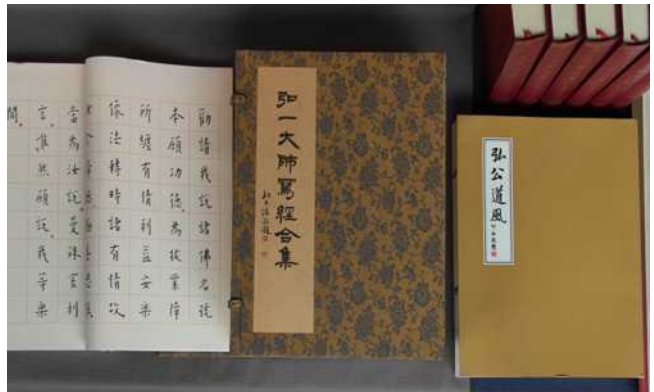 勸請我說諸佛名號
本願功德。為拔業障
所纏有情利益安樂
像法轉時諸有情故
當為汝說。曼殊室利
言。惟然願說。我等樂
聞。
弘一大師寫經合集
弘公道風